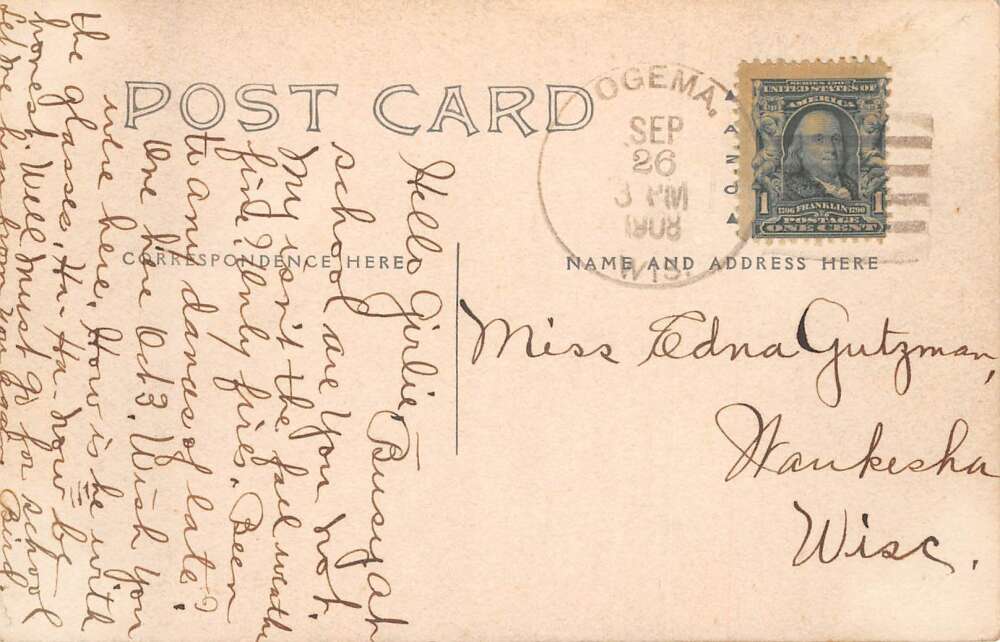 POST CARD
CORRESPONDENCE HERE
NAME AND ADDRESS HERE
OGEMA.
SEP
26
3 PM
1908
WIS.
SERIES 1902
UNITED STATES OF
AMERICA
1
1706 FRANKLIN 1790
1
POSTAGE
ONE CENT
AZO
Miss Edna Gutzman,
Waukesha
Wisc.
Hello Girlie, Busy at
school are you not.
My isn't the fall weath
fine? Only fires. Been
to any dances of late?
One here Oct 3. Wish you
were here. How is he with
the glasses. Ha-Ha- now be
honest. Well must go for school
Let me hear from you soon Bird.